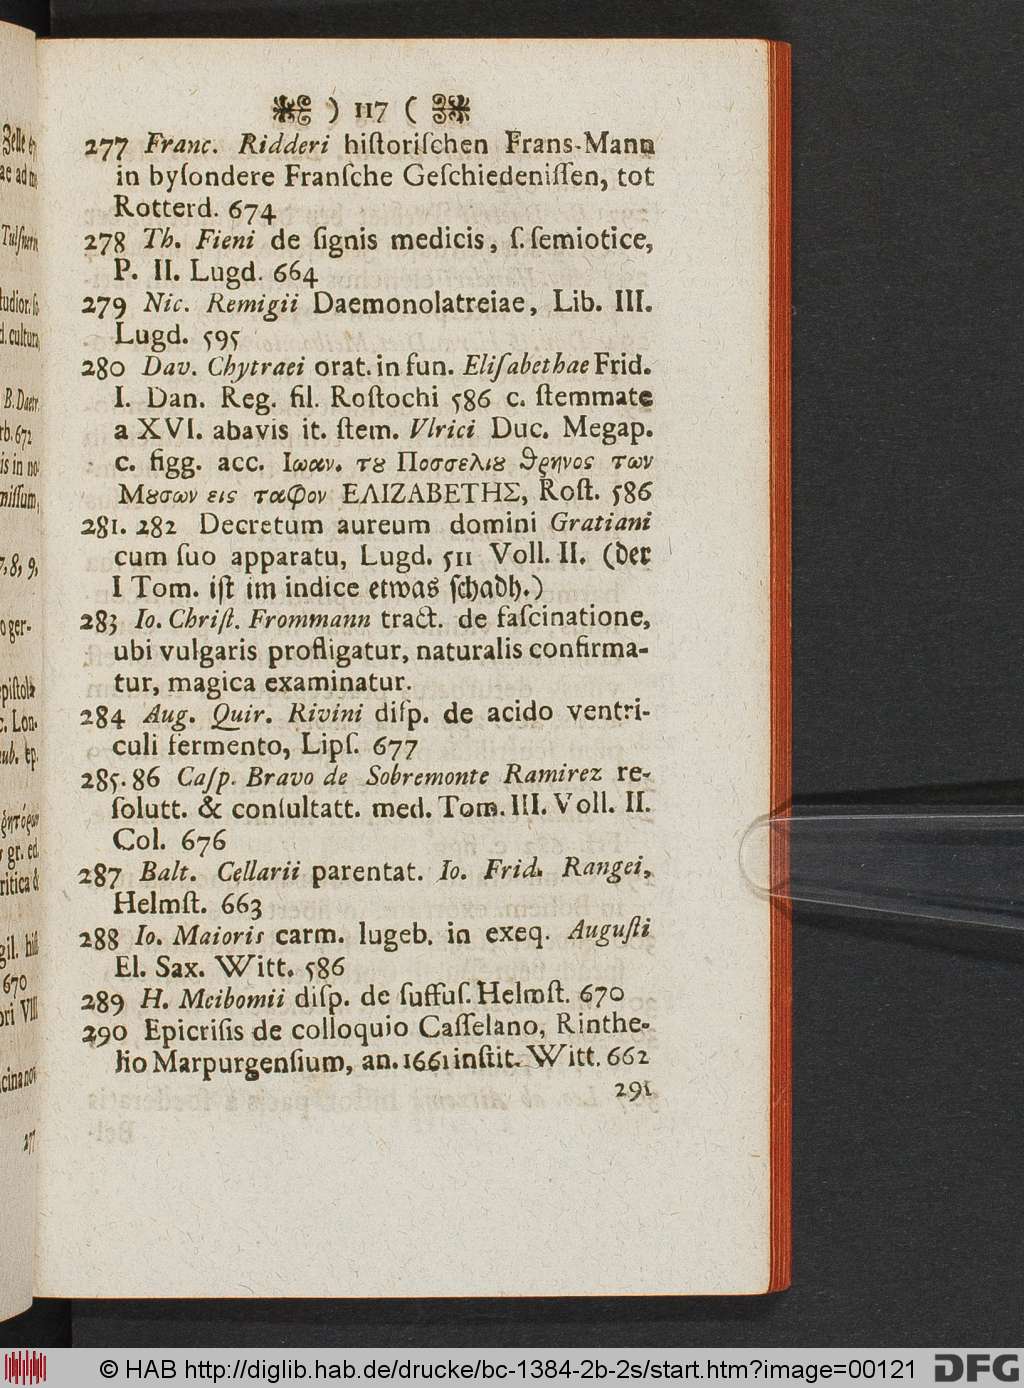 ) 117 (
277 Franc. Ridderi hiſtoriſchen Frans-Mann
in byſondere Franſche Geſchiedeniſſen, tot
Rotterd. 674
278 Th. Fieni de ſignis medicis, ſ. ſemiotice,
P. II. Lugd. 664
279 Nic. Remigii Daemonolatreiae, Lib. III.
Lugd. 595
280 Dav. Chytraei orat. in fun. Eliſabethae Frid.
I. Dan. Reg. fil. Roſtochi 586 c. ſtemmate
a XVI. abavis it. ſtem. Vlrici Duc. Megap.
c. figg. acc. Ιωαν. τȣ Ποσσελιȣ θρηνος των
Μȣσων εις ταφον ΕΛΙΖΑΒΕΤΗΣ, Roſt. 586
281. 282 Decretum aureum domini Gratiani
cum ſuo apparatu, Lugd. 511 Voll. II. (der
I Tom. iſt im indice etwas ſchadh.)
283 Io. Chriſt. Frommann tract. de faſcinatione,
ubi vulgaris profligatur, naturalis confirma-
tur, magica examinatur.
284 Aug. Quir. Rivini diſp. de acido ventri-
culi fermento, Lipſ. 677
285. 86 Caſp. Bravo de Sobremonte Ramirez re-
ſolutt. & conſultatt. med. Tom. III. Voll. II.
Col. 676
287 Balt. Cellarii parentat. Io. Frid. Rangei,
Helmſt. 663
288 Io. Maioris carm. lugeb. in exeq. Auguſti
El. Sax. Witt. 586
289 H. Meibomii diſp. de ſuffuſ. Helmſt. 670
290 Epicriſis de colloquio Caſſelano, Rinthe-
lio Marpurgenſium, an. 1661 inſtit. Witt. 662
291
© HAB http://diglib.hab.de/drucke/bc-1384-2b-2s/start.htm?image=00121
DFG